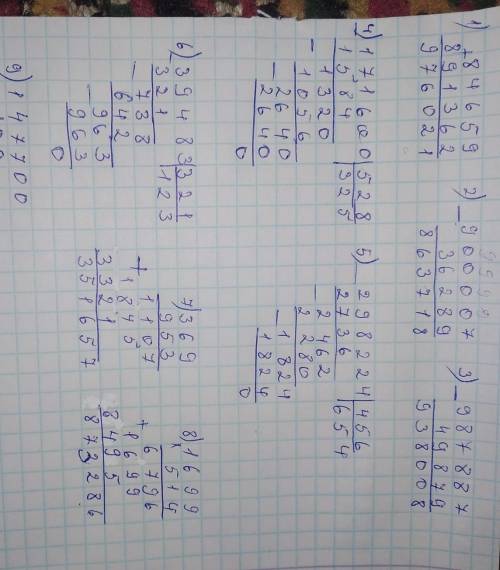 1) 84659
+
891362
976021
2) _900007
36289
863718
3) _987887
49879
938008
4) _171600|528
1584 |325
_1320
1056
_2640
2640
0
5) _298224|456
2736 |654
_2462
2280
_1824
1824
0
6) _39483|321
321 |123
_738
642
_963
963
0
7) 369
953
1107
+
1845
3321
351657
8) 1699
x
514
6796
+
1699
8495
873286
9) 147700